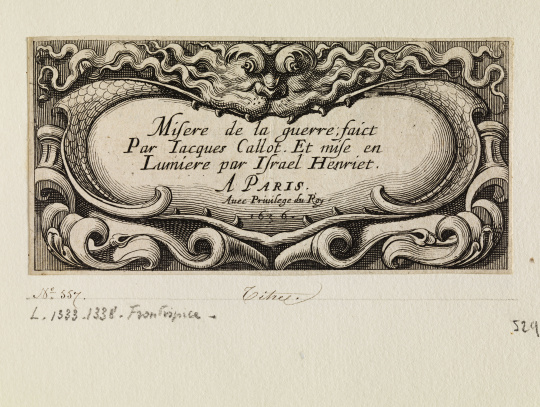 Misere de la guerre; faict
Par Iacques Callot. Et mise en
Lumiere par Israel Henriet.
A PARIS.
Auec Privilege du Roy
1636.
No. 557.
Titre.
L. 1333-1338. Frontispice
529